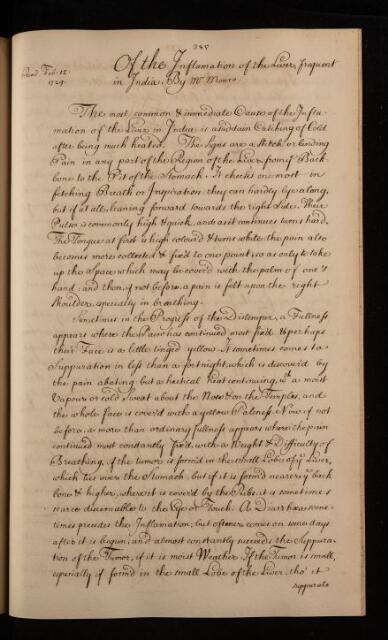 Of the Inflamation of the Liver, frequent
Read Feb. 12. in India. By Mr Monro
The most common & immediate Cause of the Infla-
mation of the Liver in India is a suddain Catching of Cold
after being much heated. The Signs are a Stitch or binding
Pain in any part of the Region of the Liver, from yͤ Back-
bone to the Pit of the Stomach. It checks one most in
fetching Breath or Inspiration; they can hardly lye along,
but if at all, leaning forward towards the right Side. Their
Pulse is commonly high & quick, and as it continues turns hard.
The Tongue at first is high colour'd & turns white, the pain also
becomes more collected & fix'd to one point, so as only to take
up the Space which may be cover'd with the palm of one's
hand: and then, if not before, a pain is felt upon the right
Shoulder, especially in breathing.
Sometimes in the Progress of the Distemper, a Fullness
appears where the Pain has continued most fix'd & perhaps
their Face is a little tinged yellow. It sometimes comes to a
Suppuration in less than a fortnight, which is discover'd by
the pain abating: but a hectical heat continuing, wᵗʰ a moist
Vapour or cold Sweat about the Nose & on the Temples, and
the whole face is cover'd with a yellow Paleness. Now if not
before, a more than ordinary fullness appears where the pain
continued most constantly fix'd, with a Weight & Difficulty of
Breathing, if the tumor is form'd in the small Lobe of yͤ Liver,
which lies over the Stomach, but if it is form'd nearer yͤ back
bone & higher, where it is cover'd by the Ribs, it is sometimes
scarce discernable to the Eye or Touch. A Diarrhæa some-
times precedes the Inflamation; but oftener comes on some days
after it is begun; and almost constantly succeeds the Suppura-
tion of the Tumor, if it is moist Weather. If the Tumor is small,
especially if form'd in the small Lobe of the Liver, tho' it
suppurate